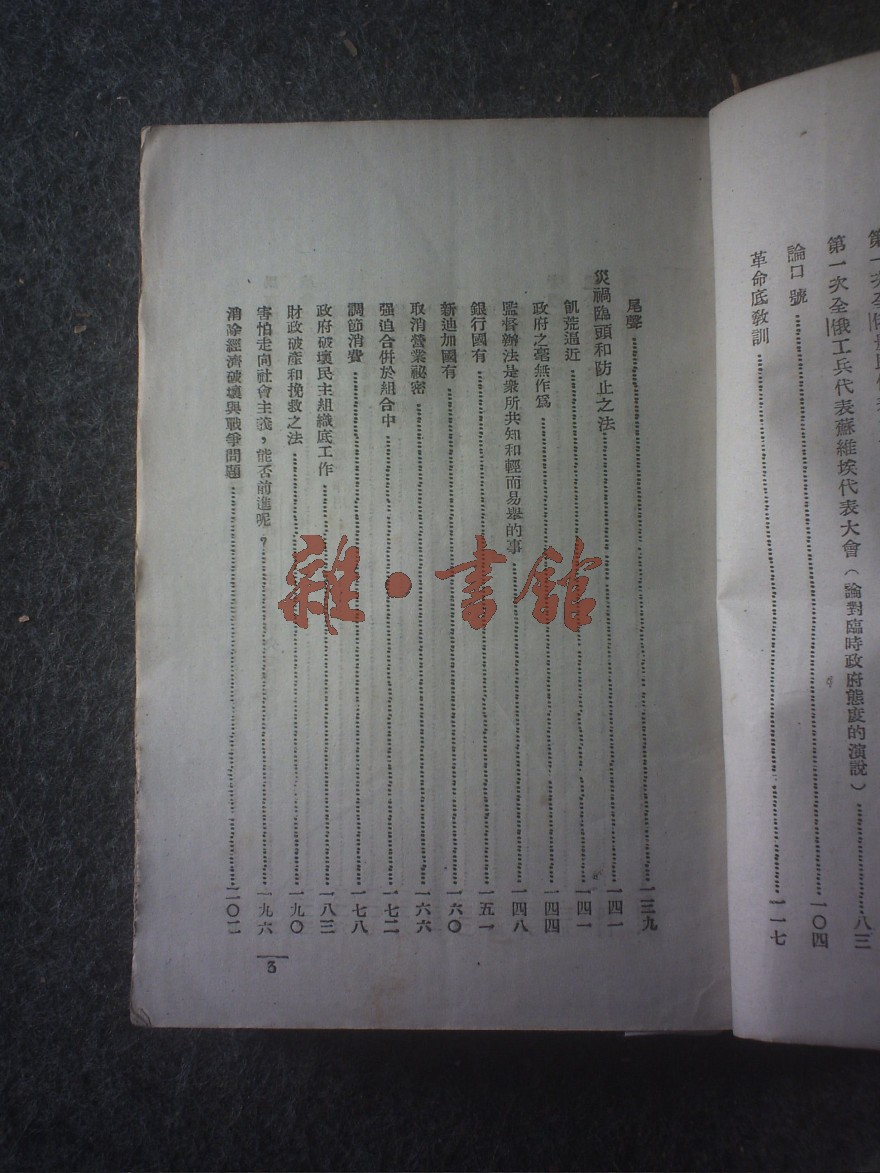 第一次全俄工兵代表蘇維埃代表大會(論對臨時政府態度的演說)……八三
論口號……一〇四
革命底教訓……一一七
尾聲……一三九
災禍臨頭和防止之法……一四一
飢荒逼近……一四一
政府之毫無作爲……一四四
監督辦法是衆所共知和輕而易舉的事……一四八
銀行國有……一五一
新迪加國有……一六〇
取消營業祕密……一六六
强迫合併於組合中……一七二
調節消費……一七八
政府破壞民主組織底工作……一八三
財政破產和挽救之法……一九〇
害怕走向社會主義,能否前進呢?……一九六
消除經濟破壞與戰爭問題……二〇二
3
雜·書館